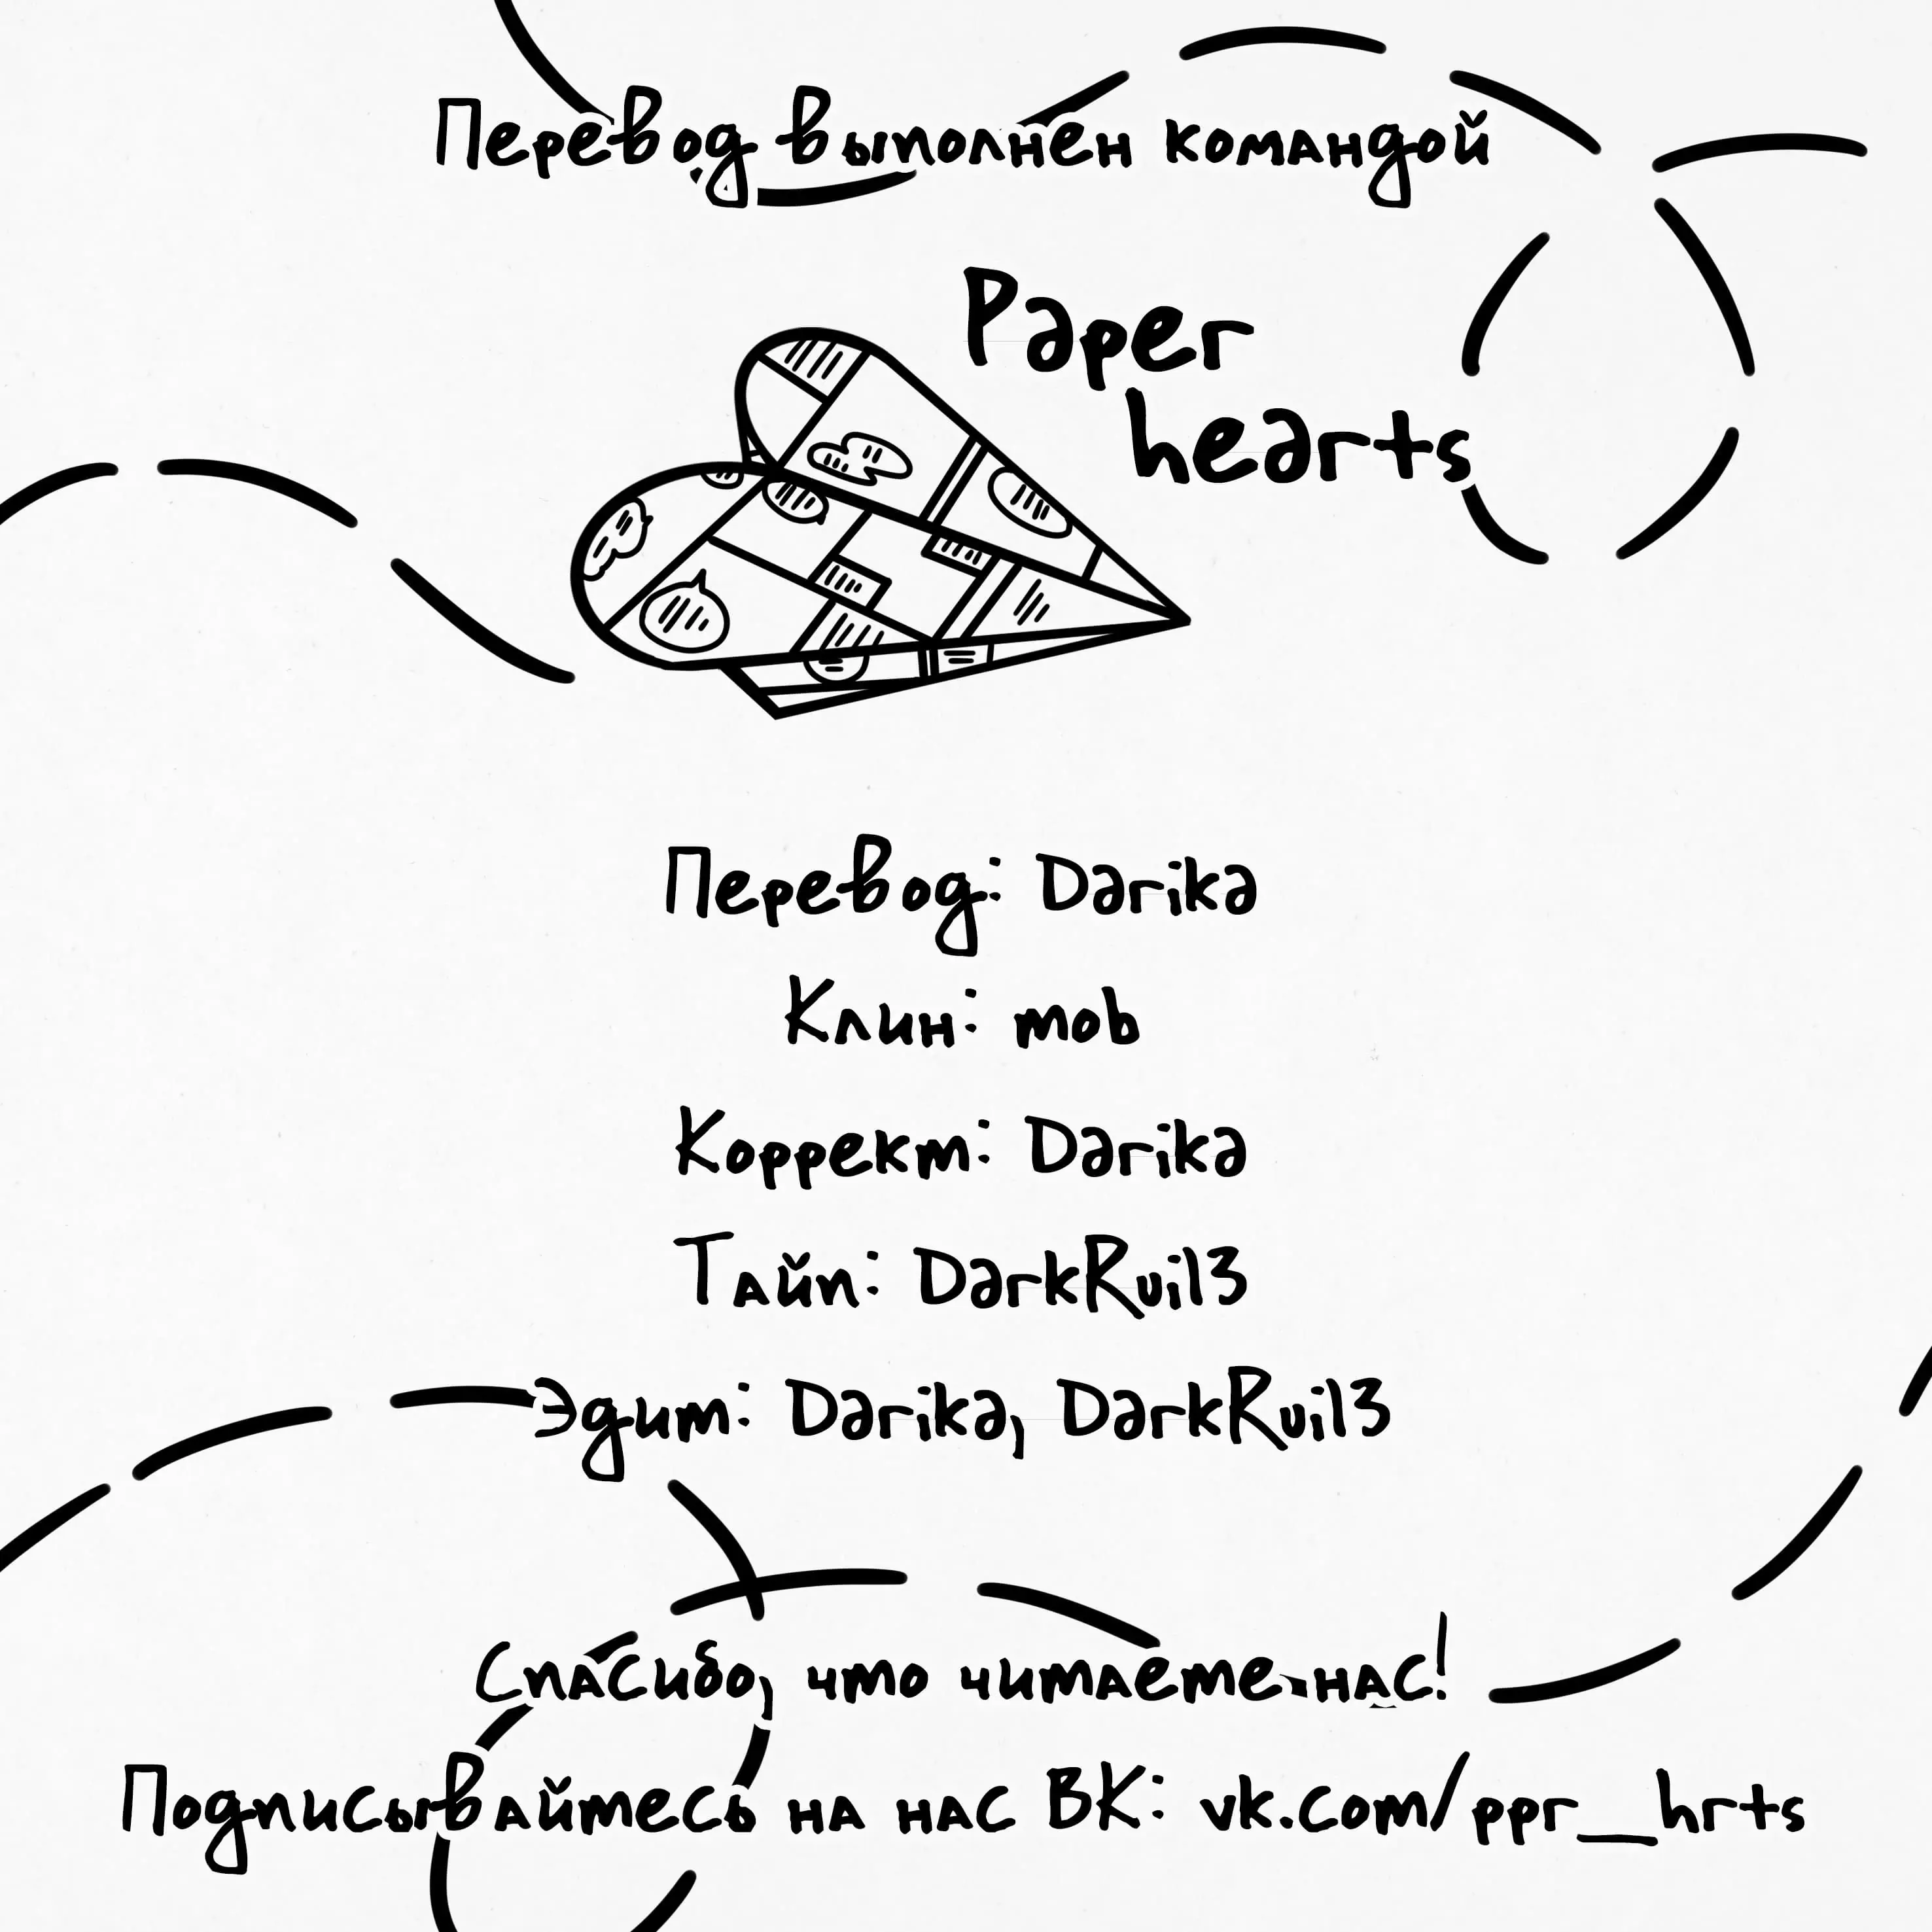 Перевод выполнен командой
Paper
hearts
Перевод: Darika
Клин: mob
Коррект: Darika
Тайп: DarkRuil3
Эдит: Darika, DarkRuil3
Спасибо, что читаете нас!
Подписывайтесь на нас ВК: vk.com/ppr__hrts